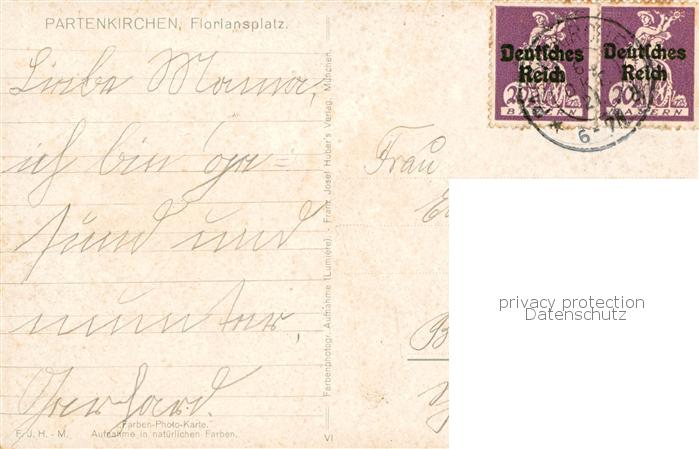 PARTENKIRCHEN, Floriansplatz.
Liebe Mama,
ich bin ge=
sund und
munter,
Gerhard.
"Farben-Photo-Karte."
F. J. H. - M. Aufnahme in natürlichen Farben.
Farbenphotogr. Aufnahme (Lumière). - Franz Josef Huber's Verlag, München.
VI
Deutsches
Reich
20 20
BAYERN
Deutsches
Reich
20
BAYERN
6-7N
Frau
privacy protection
Datenschutz